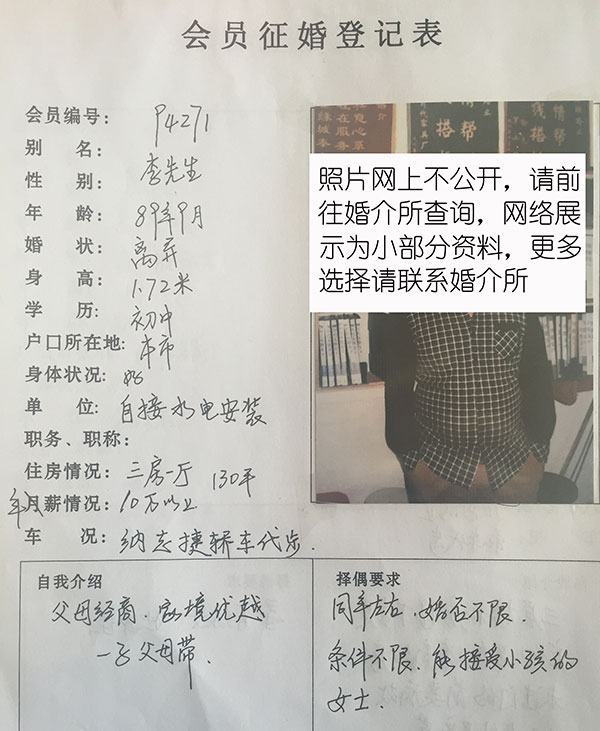 会员征婚登记表
会员编号： P4271
别 名： 李先生
性 别：
年 龄： 89年9月
婚 状： 离异
身 高： 1.72米
学 历： 初中
户口所在地： 本市
身体状况： 好
单 位： 自接水电安装
职务、职称：
住房情况： 三房一厅 130平
年收
月薪情况： 10万以上
车 况： 纳志捷轿车代步.
照片网上不公开，请前
往婚介所查询，网络展
示为小部分资料，更多
选择请联系婚介所
自我介绍
父母经商.家境优越
一子父母带.
择偶要求
同年左右.婚否不限.
条件不限.能接受小孩的
女士.